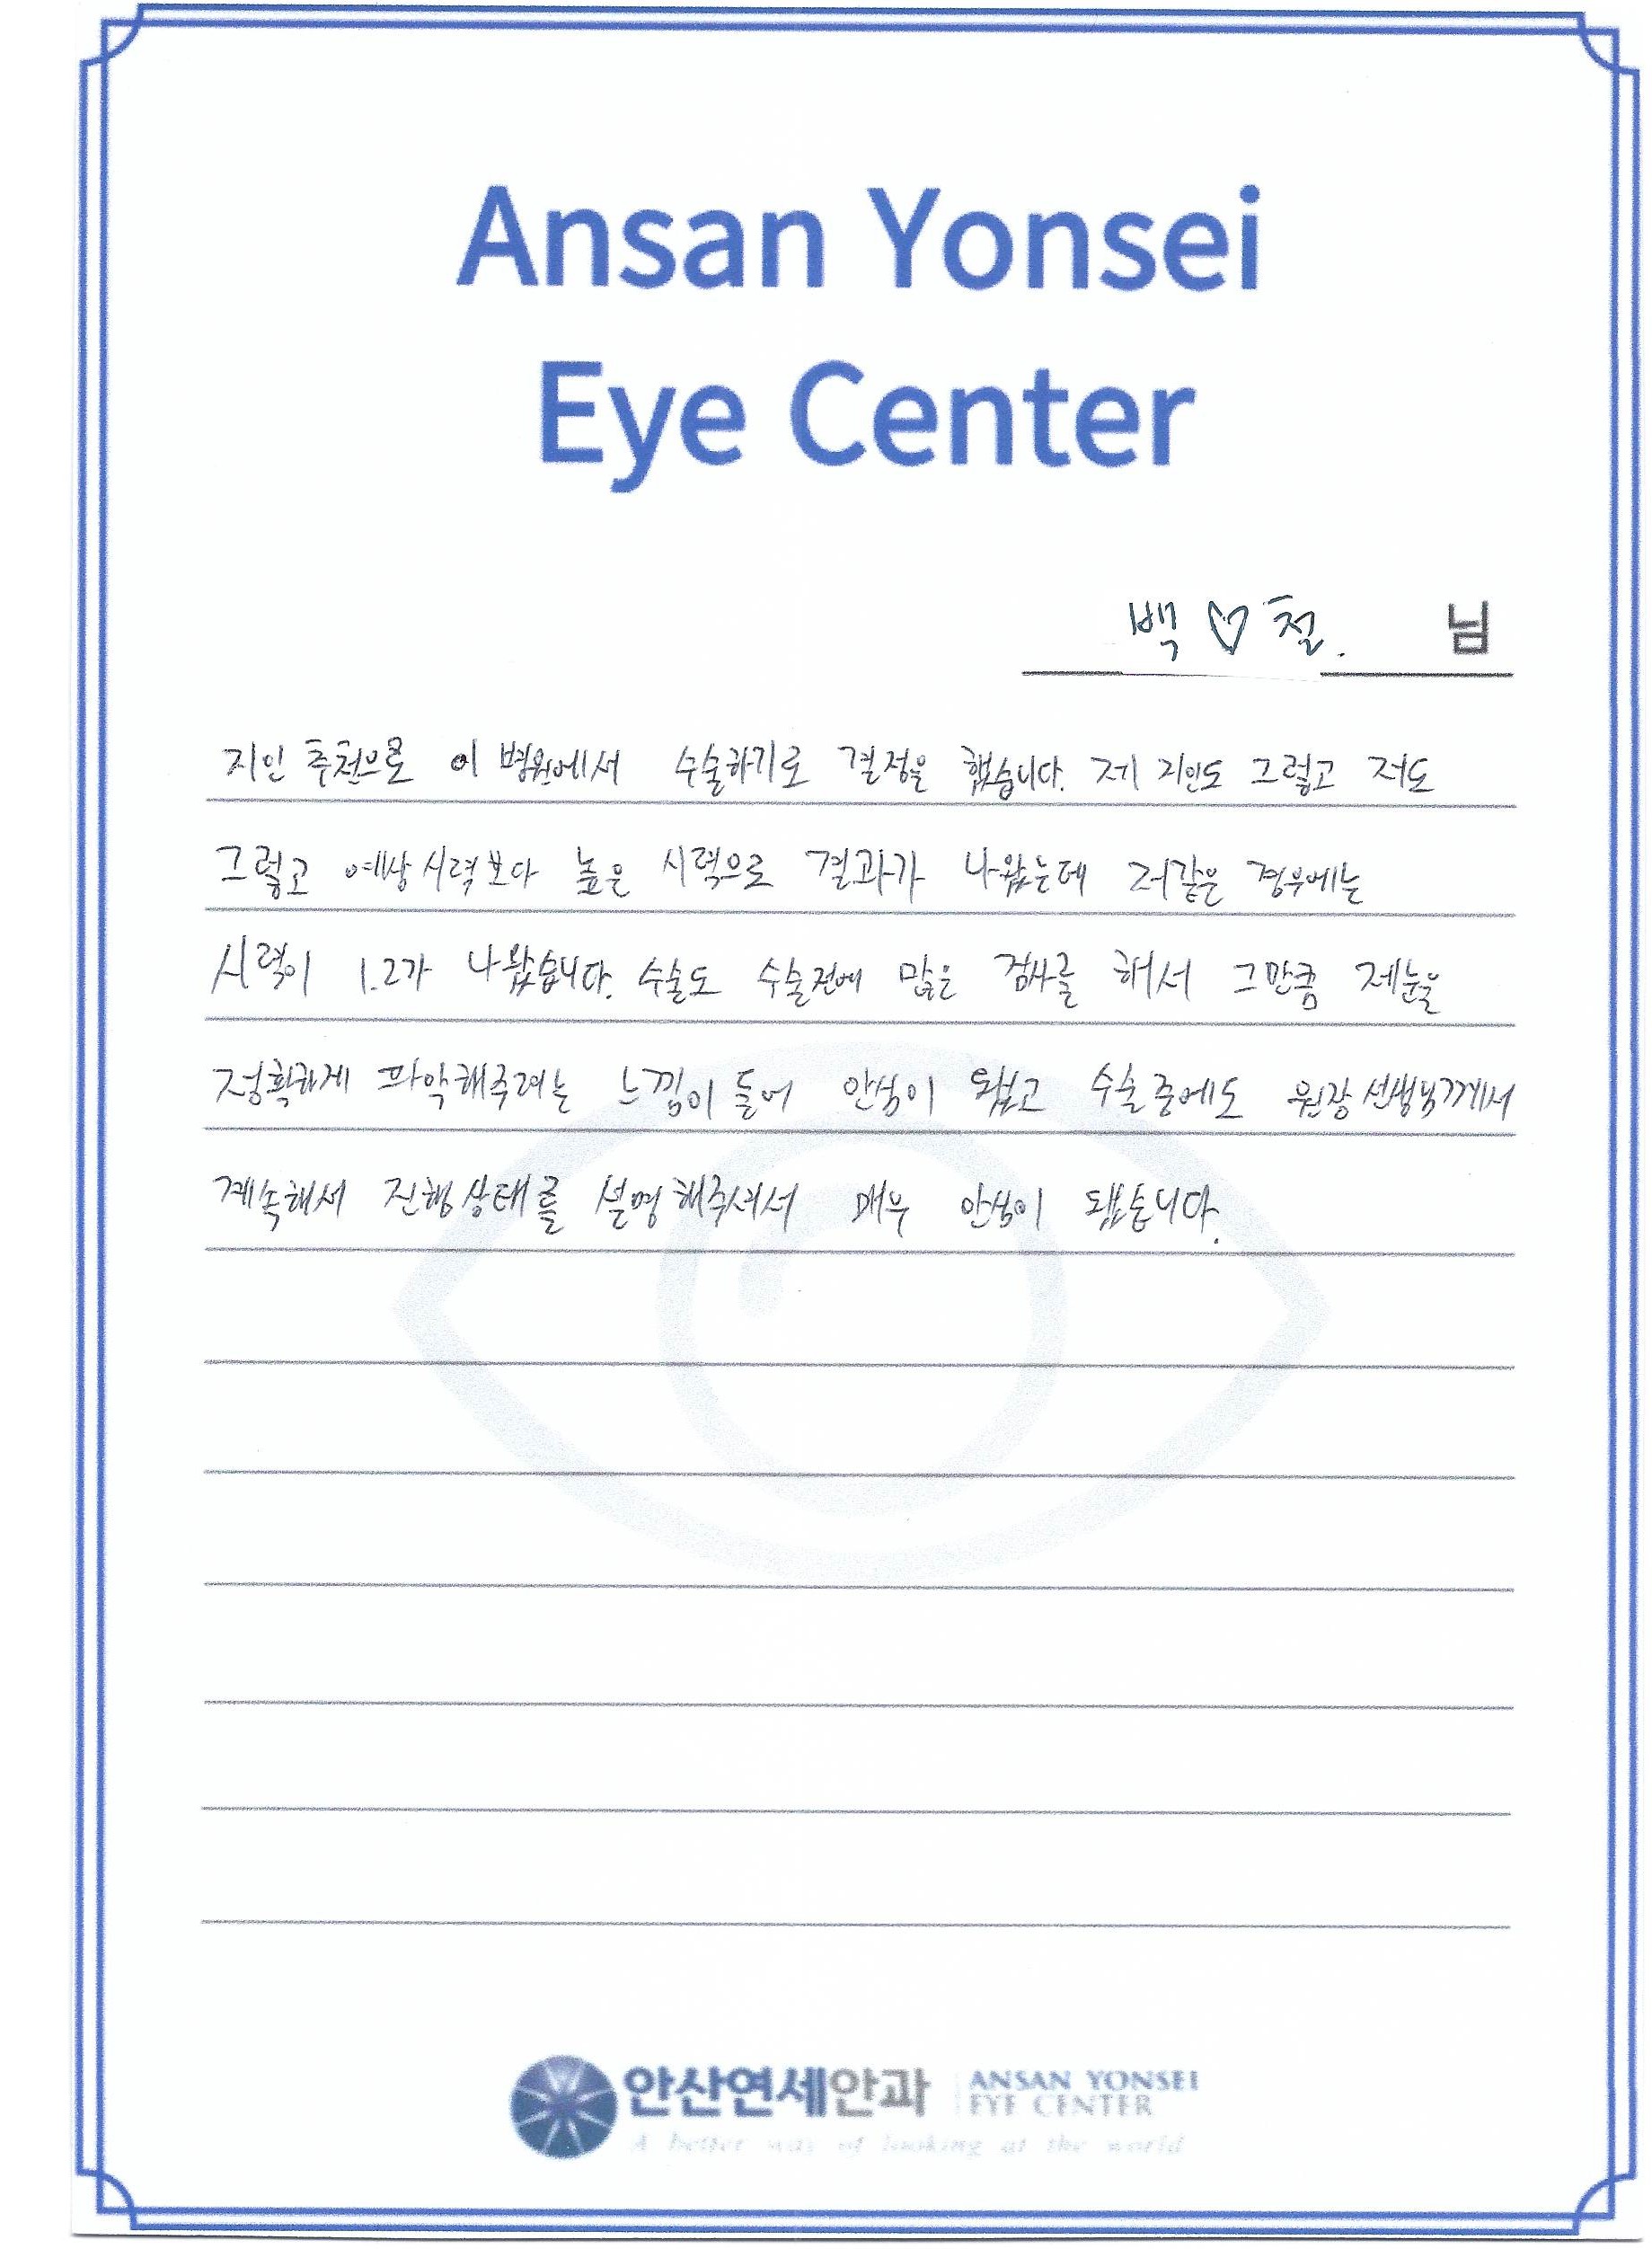 Ansan Yonsei
Eye Center
백♡철. 님
지인 추천으로 이 병원에서 수술하기로 결정을 했습니다. 제 지인도 그렇고 저도
그렇고 예상시력보다 높은 시력으로 결과가 나왔는데 저같은 경우에는
시력이 1.2가 나왔습니다. 수술도 수술전에 많은 검사를 해서 그만큼 제눈을
정확하게 파악해주려는 느낌이 들어 안심이 됐고 수술중에도 원장선생님께서
계속해서 진행상태를 설명해주셔서 매우 안심이 됐습니다.
안산연세안과 ANSAN YONSEI
EYE CENTER
A better way of looking at the world